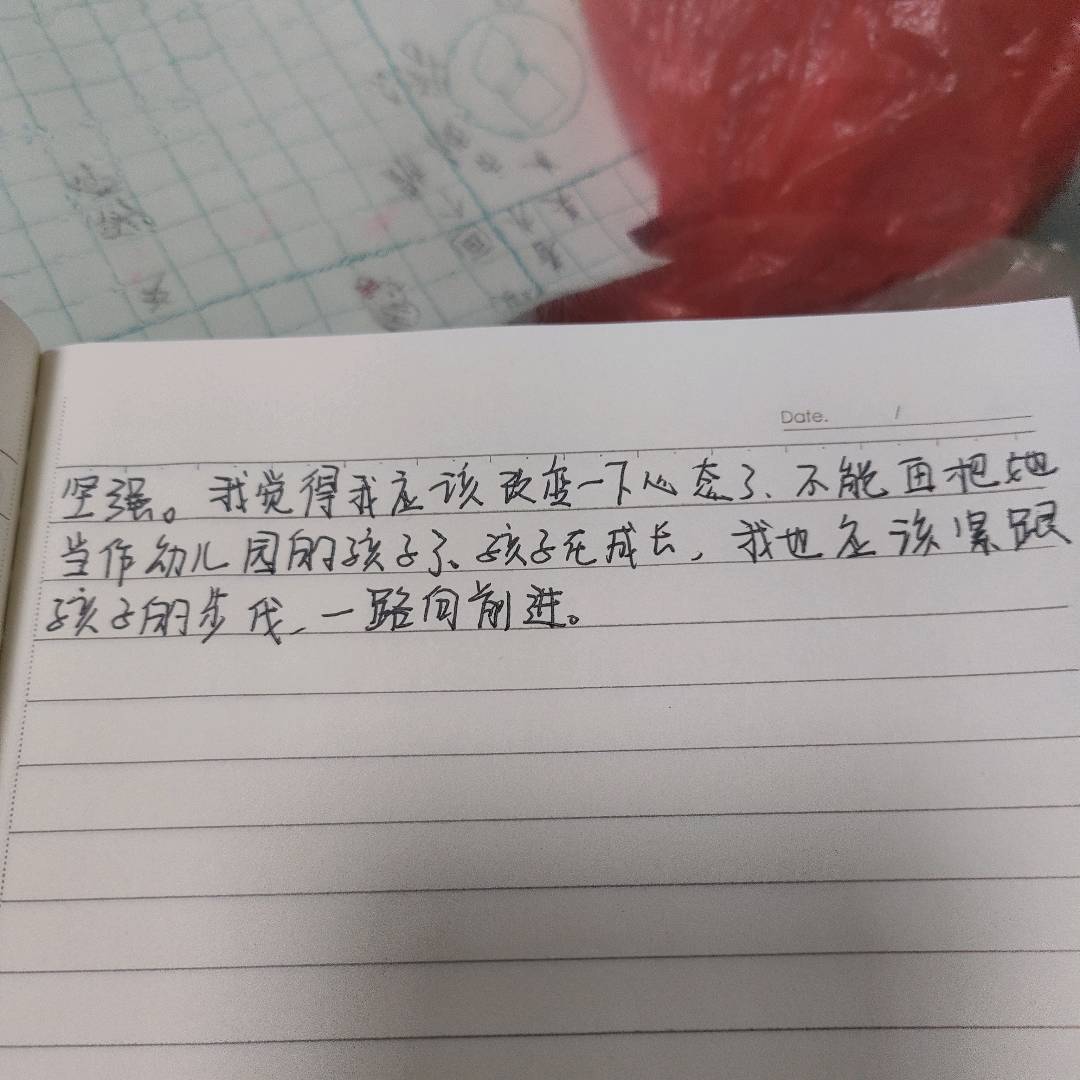 Date. /
坚强。我觉得我应该改变一下心态了、不能再把她
当作幼儿园的孩子了、孩子在成长，我也应该紧跟
孩子的步伐、一路向前进。